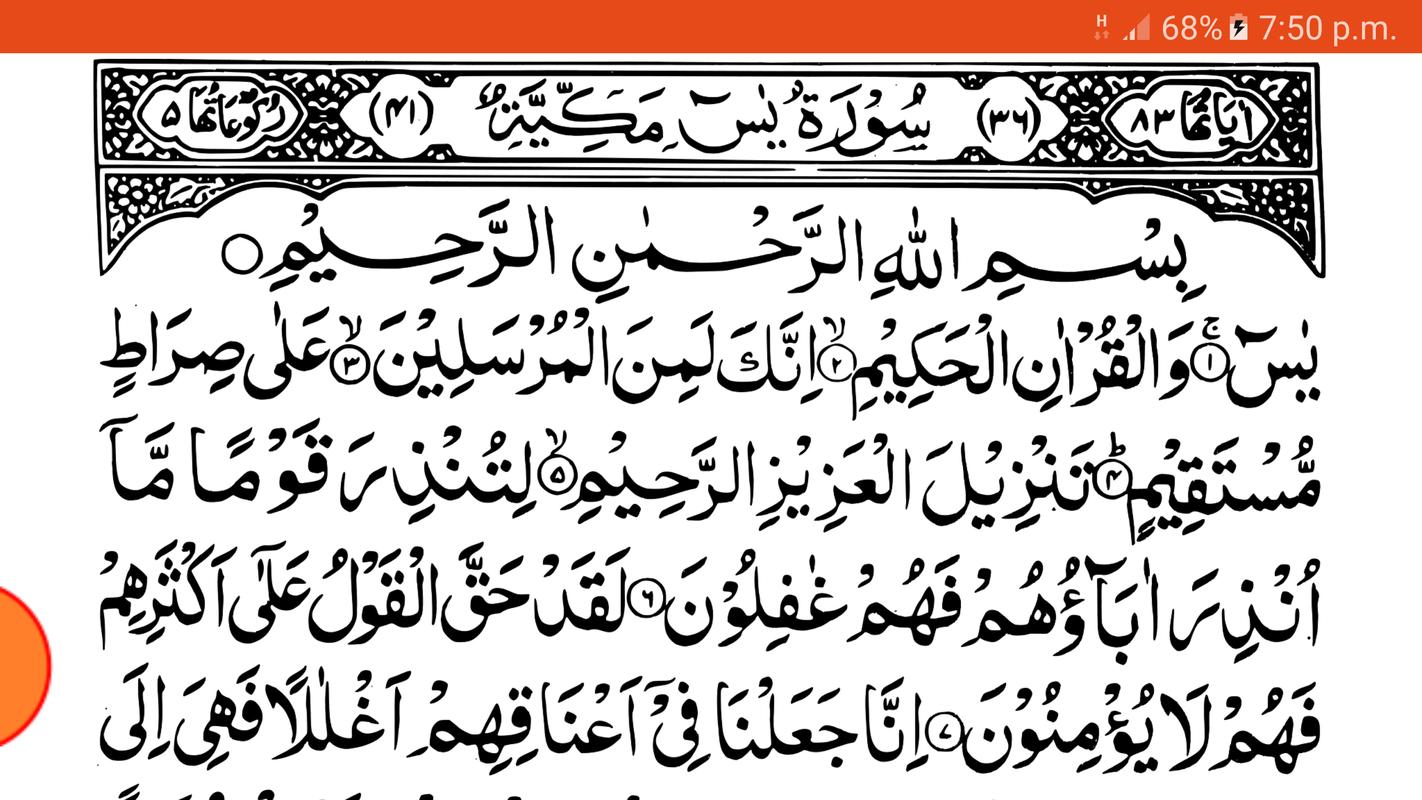 H 68% 7:50 p.m.
اٰيَاتُهَا ٨٣ (٣٦) سُوْرَةُ يٰسٓ مَكِّيَّةٌ (٤١) رُكُوْعَاتُهَا ٥
بِسْمِ اللّٰهِ الرَّحْمٰنِ الرَّحِيْمِ
يٰسٓ ۚ﴿١﴾ وَالْقُرْاٰنِ الْحَكِيْمِ ۙ﴿٢﴾ اِنَّكَ لَمِنَ الْمُرْسَلِيْنَ ۙ﴿٣﴾ عَلٰى صِرَاطٍ
مُّسْتَقِيْمٍ ؕ﴿٤﴾ تَنْزِيْلَ الْعَزِيْزِ الرَّحِيْمِ ۙ﴿٥﴾ لِتُنْذِرَ قَوْمًا مَّاۤ
اُنْذِرَ اٰبَآؤُهُمْ فَهُمْ غٰفِلُوْنَ ﴿٦﴾ لَقَدْ حَقَّ الْقَوْلُ عَلٰٓى اَكْثَرِهِمْ
فَهُمْ لَا يُؤْمِنُوْنَ ﴿٧﴾ اِنَّا جَعَلْنَا فِيْۤ اَعْنَاقِهِمْ اَغْلٰلًا فَهِيَ اِلَى